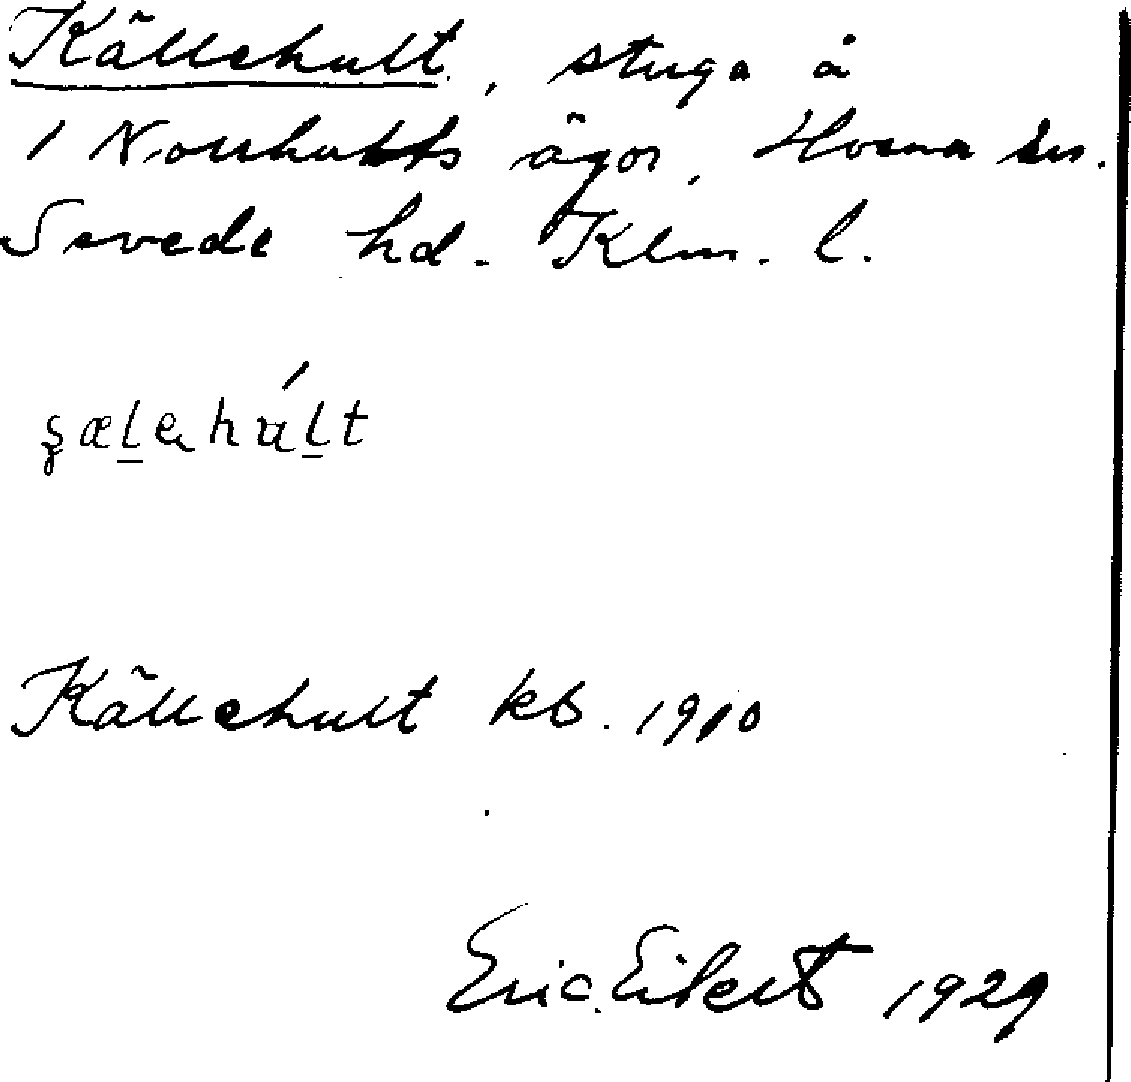 Källehult, stuga å
1 Norrhults ägor, Horna sn.
Sevede hd. Klm. l.
s̨æḻehúḻt
Källehult kb. 1910
Eric Eilert 1929